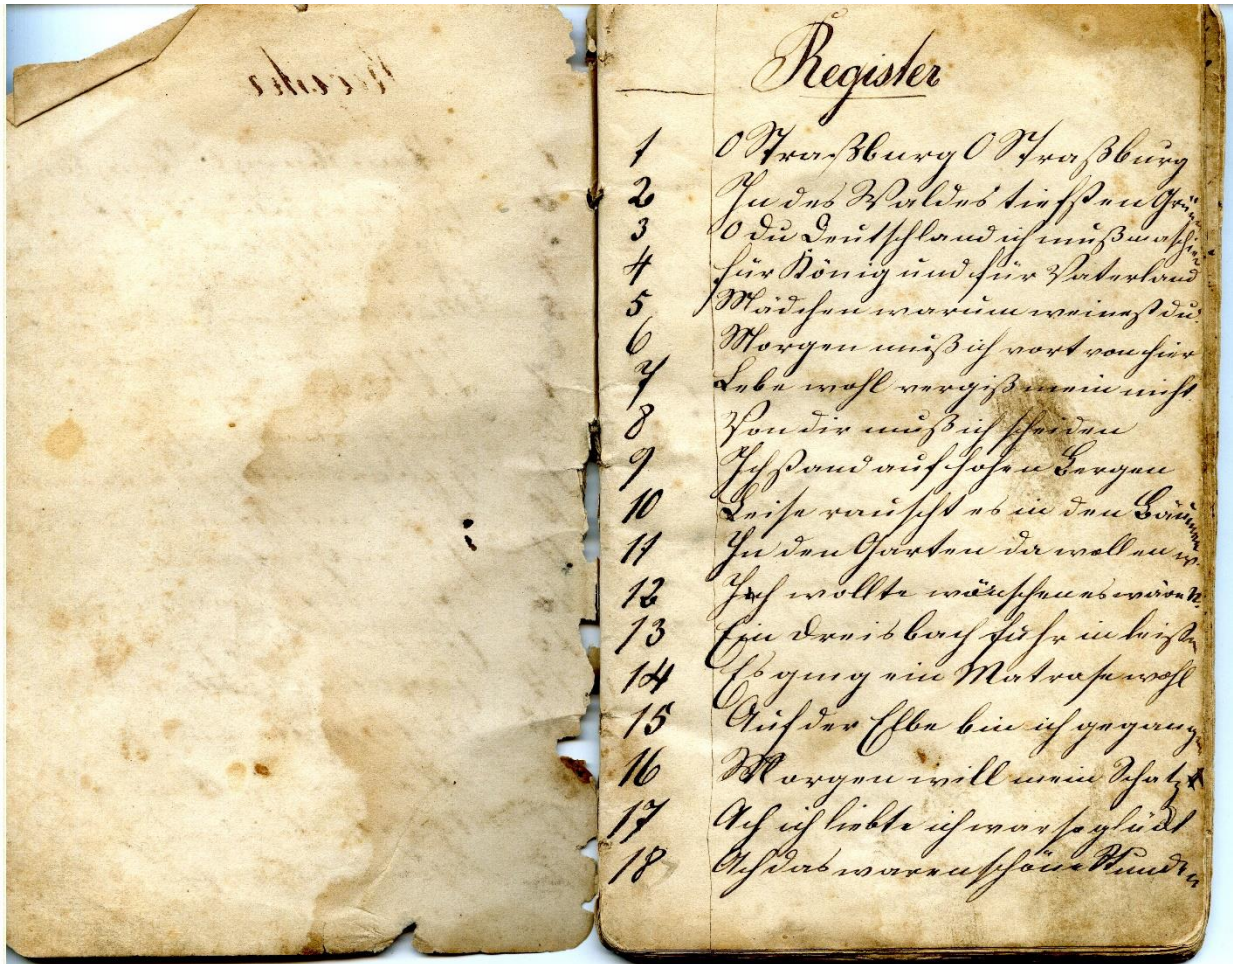 Register
1 O Straßburg O Straßburg
2 In des Waldes tiefsten Grün
3 O du Deutschland ich muß maschier
4 für König und für Vaterland
5 Mädchen warum weinest du
6 Morgen muß ich vort von hier
7 Lebe wohl vergiß mein nicht
8 Von dir muß ich scheiden
9 Ich stand auf hohen Bergen
10 Leise rauscht es in den Bäumen
11 In den Garten da wollen w
12 Ich wollte wünschen es wäre N.
13 Ein Dreisbach fuhr in
14 Es ging ein Matrose wohl
15 Auf der Elbe bin ich gegange
16 Morgen will mein Schatz
17 Ach ich liebte ich war so glückl
18 Ach das waren schöne Stunden